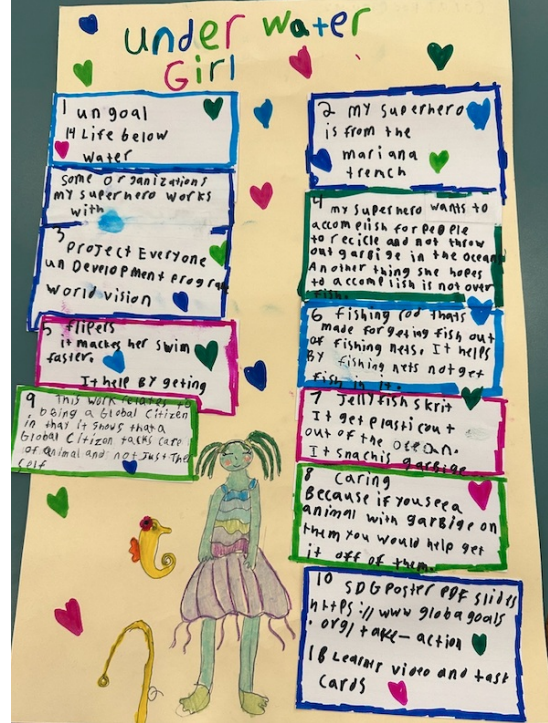 under water
Girl
1 un goal
14 Life below
water
some organizations
my superhero works
with
3
project Everyone
un Development program
world vision
5 flipers
it mackes her swim
faster.
It help By geting
9 This work relates to
being a Global Citizen
in that it shows that a
Global Citizen tacks care
of animal and not just The
self
2 my superhero
is from the
mariana
trench
4 my superhero wants to
accomplish for people
to recicle and not throw
out garbige in the ocean
Another thing she hopes
to accomplish is not over
fish.
6 fishing rod thats
made for geting fish out
of fishing nets. It helps
By fishing nets not get
fish in it.
7 Jelly fish skrit
It get plastic out
out of the ocean.
It snachis garbige
8 caring
Because if you see a
animal with garbige on
them you would help get
it off of them.
10 SDG Poster PDF slides
https://www globa goals
.org/ take-action
1B Learnir video and task
cards